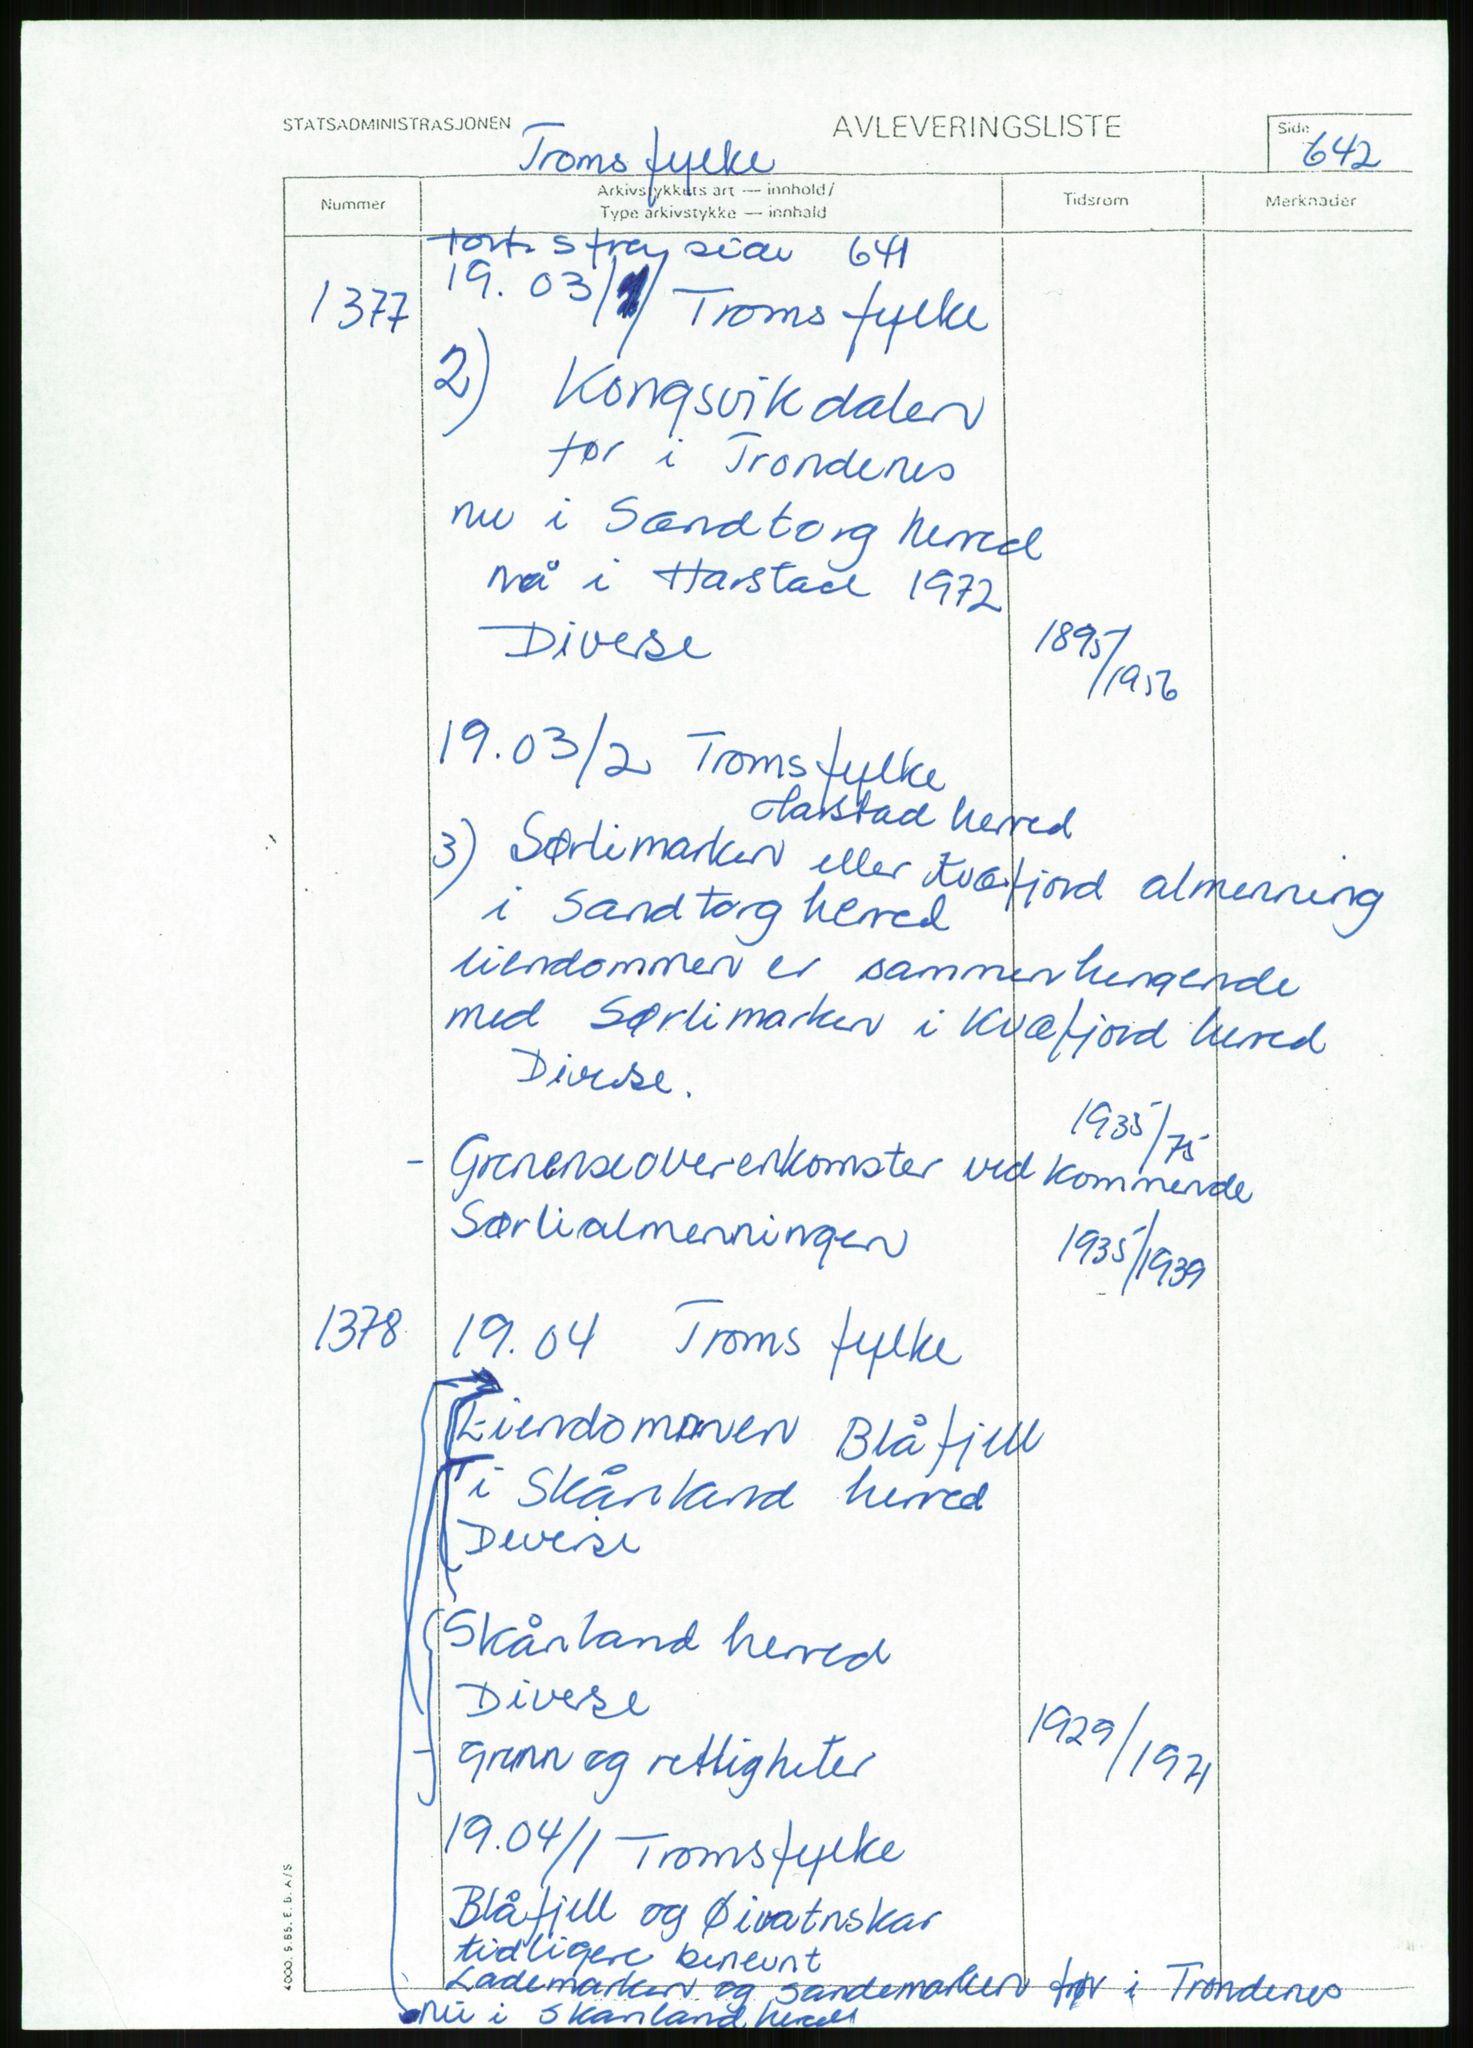 STATSADMINISTRASJONEN
AVLEVERINGSLISTE
Side
642
Troms fylke
Nummer
Arkivstykkets art — innhold/
Type arkivstykke — innhald
Tidsrom
Merknader
forts fra side 641
1377
19.03/1/ Troms fylke
2) Kongsvikdalen
før i Trondenes
nu i Sandtorg herred
nå i Harstad 1972
Diverse
1895/1956
19.03/2 Troms fylke
Harstad herred
3) Sørlimarken eller Kvæfjord almenning
i Sandtorg herred
eiendommen er sammenhengende
med Sørlimarken i Kvæfjord herred
Diverse.
1935/75
- Grenseoverenkomster vedkommende
Sørlialmenningen
1935/1939
1378
19.04 Troms fylke
Eiendommen Blåfjell
i Skånland herred
Diverse
Skånland herred
Diverse
- Grunn og rettigheter
1929/1971
19.04/1 Troms fylke
Blåfjell og Øivatnskar
tidligere benevnt
Lademarken og Sandemarken før i Trondenes
nu i Skånland herred
4000. 9.85. E. B. A/S